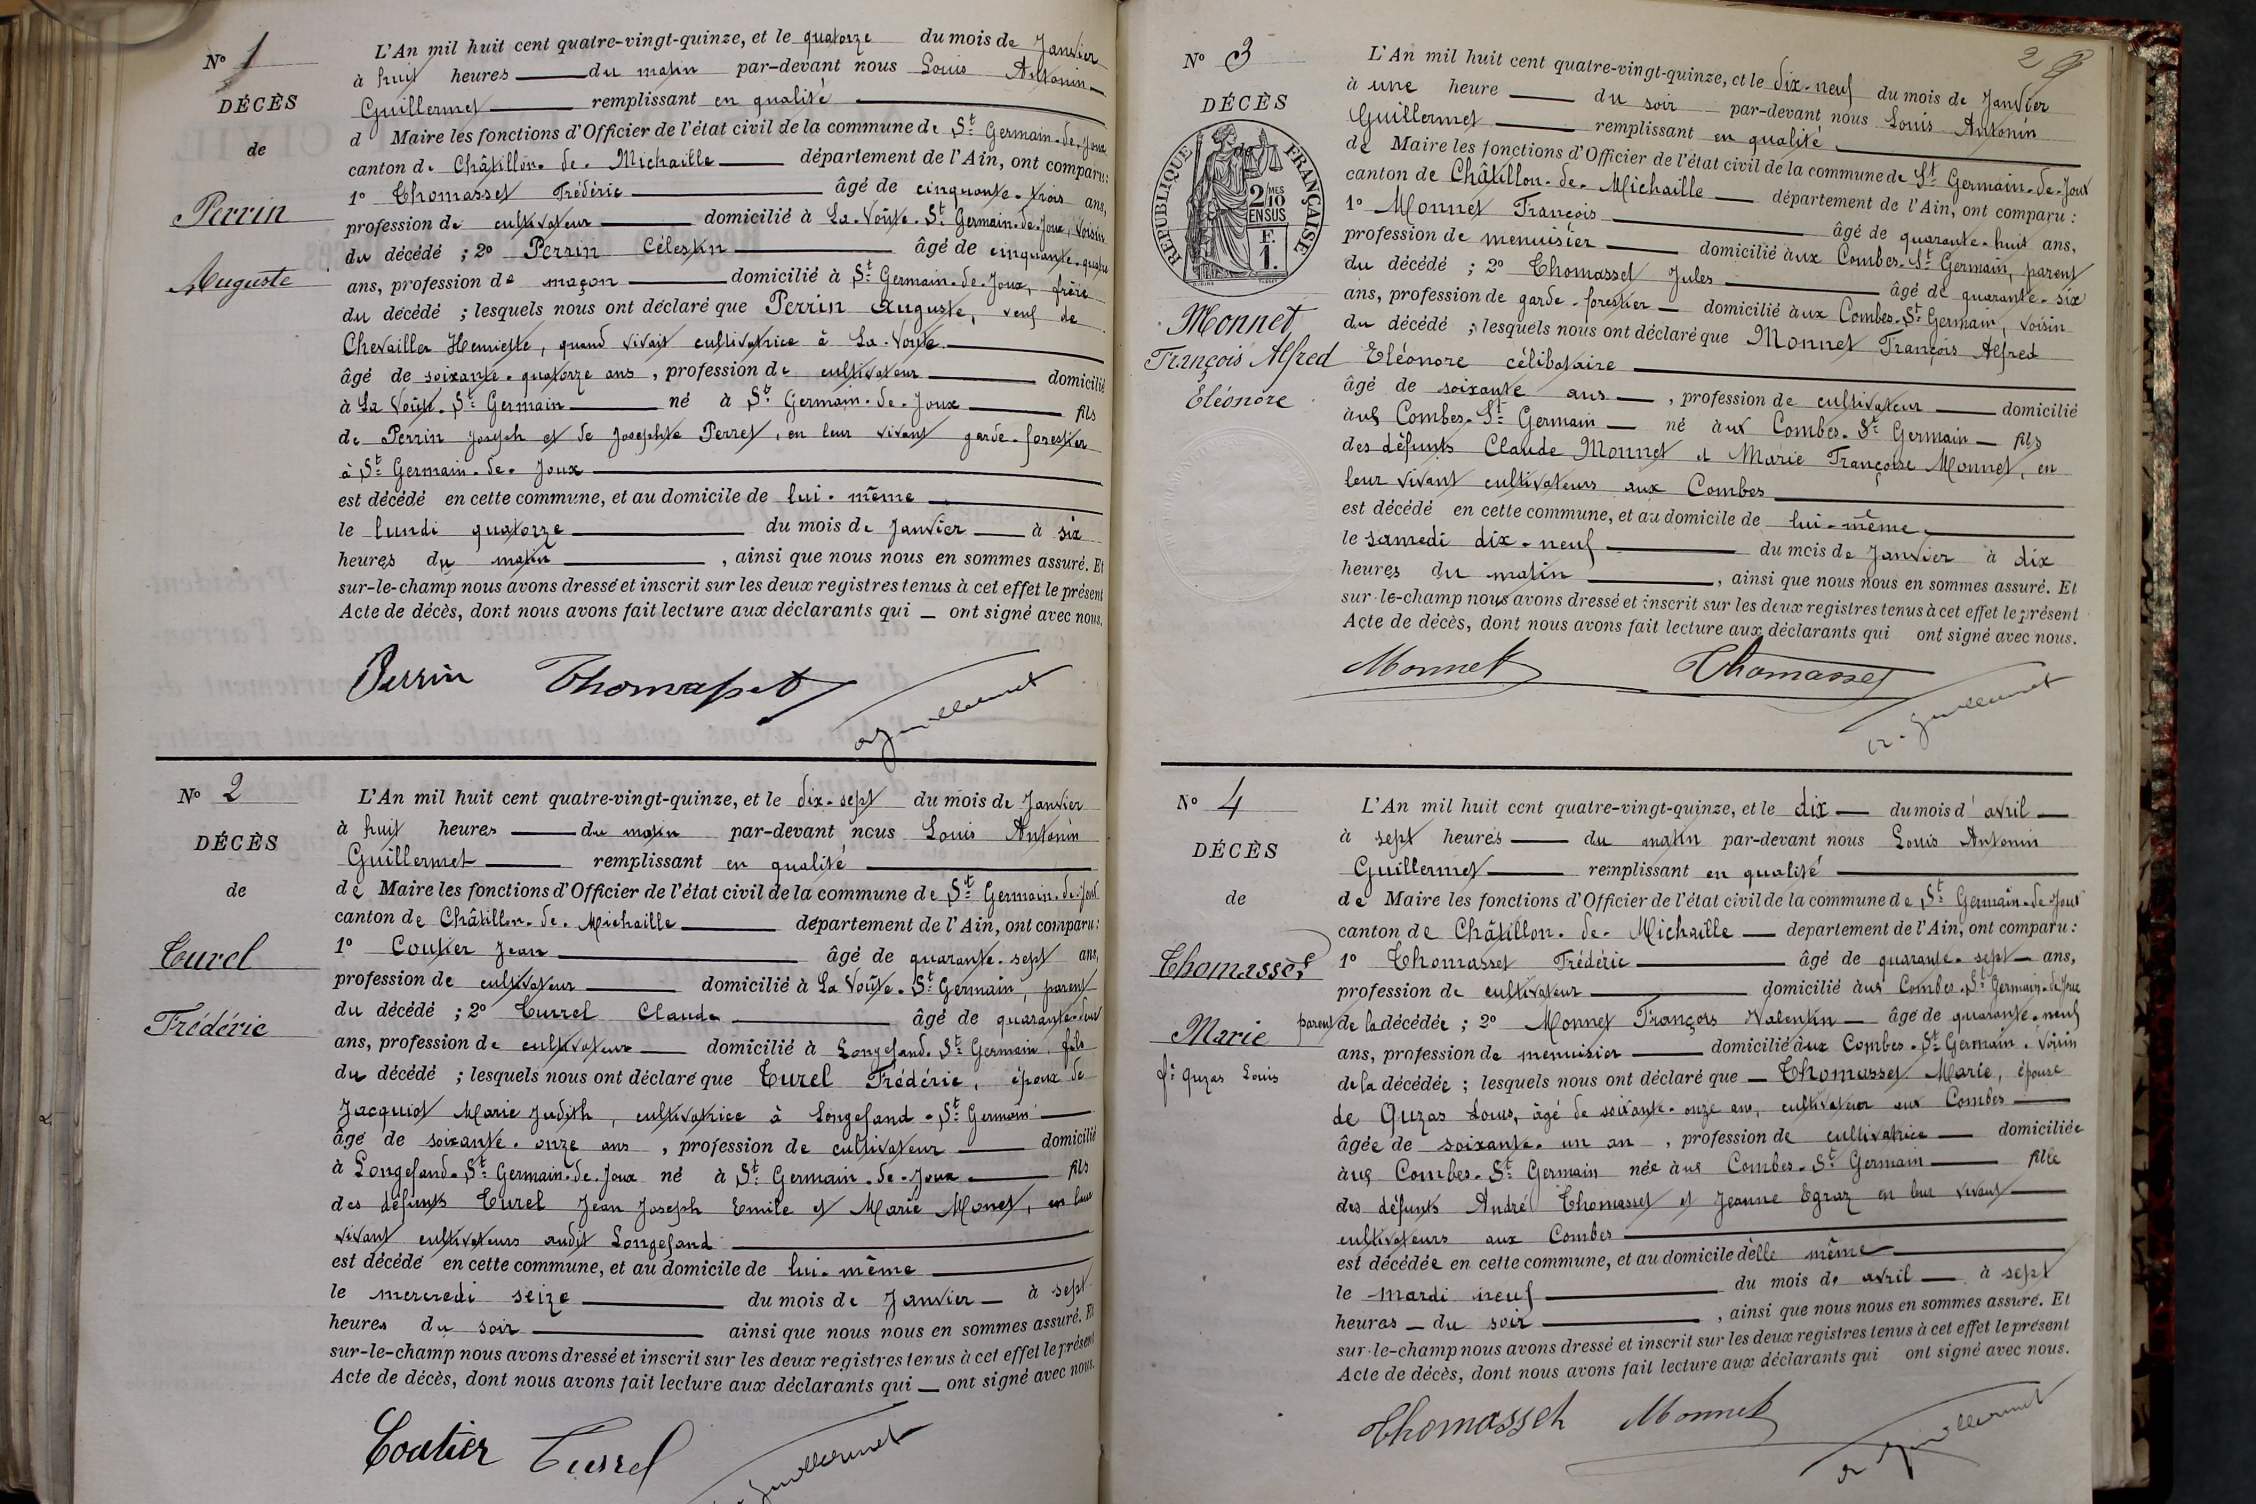 Nº 1
DÉCÈS
de
Perrin
Auguste
L'An mil huit cent quatre-vingt-quinze, et le quatorze du mois de Janvier
à huit heures du matin par-devant nous Louis Antonin
Guillermet remplissant en qualité
d Maire les fonctions d'Officier de l'état civil de la commune de St Germain-de-Joux
canton de Châtillon-de-Michaille département de l'Ain, ont comparu:
1º Thomasset Frédéric âgé de cinquante-trois ans,
profession de cultivateur domicilié à La-Voûte-St Germain-de-Joux, voisin
du décédé ; 2º Perrin Célestin âgé de cinquante-quatre
ans, profession de maçon domicilié à St Germain-de-Joux, frère
du décédé ; lesquels nous ont déclaré que Perrin Auguste, veuf de
Chevallier Henriette, quand vivait cultivatrice à La-Voûte
âgé de soixante-quatorze ans, profession de cultivateur domicilié
à La Voûte-St Germain né à St Germain-de-Joux fils
de Perrin Joseph et de Josephte Perret, en leur vivant garde-forestier
à St Germain-de-Joux
est décédé en cette commune, et au domicile de lui-même
le lundi quatorze du mois de Janvier à six
heures du matin, ainsi que nous nous en sommes assuré. Et
sur-le-champ nous avons dressé et inscrit sur les deux registres tenus à cet effet le présent
Acte de décès, dont nous avons fait lecture aux déclarants qui — ont signé avec nous.
Perrin Thomasset
a Guillermet
Nº 2
DÉCÈS
de
Turel
Frédéric
L'An mil huit cent quatre-vingt-quinze, et le dix-sept du mois de Janvier
à huit heures du matin par-devant nous Louis Antonin
Guillermet remplissant en qualité
de Maire les fonctions d'Officier de l'état civil de la commune de St Germain-de-Joux
canton de Châtillon-de-Michaille département de l'Ain, ont comparu:
1º Coutier Jean âgé de quarante-sept ans,
profession de cultivateur domicilié à La Voûte-St Germain, parent
du décédé ; 2º Turrel Claude âgé de quarante-deux
ans, profession de cultivateur domicilié à Longefand-St Germain, fils
du décédé ; lesquels nous ont déclaré que Turel Frédéric, époux de
Jacquiot Marie Judith, cultivatrice à Longefand-St Germain
âgé de soixante-onze ans, profession de cultivateur domicilié
à Longefand-St Germain-de-Joux né à St Germain-de-Joux fils
des défunts Turel Jean Joseph Emile et Marie Monet, en leur
vivant cultivateurs audit Longefand
est décédé en cette commune, et au domicile de lui-même
le mercredi seize du mois de Janvier à sept
heures du soir ainsi que nous nous en sommes assuré. Et
sur-le-champ nous avons dressé et inscrit sur les deux registres tenus à cet effet le présent
Acte de décès, dont nous avons fait lecture aux déclarants qui — ont signé avec nous.
Coutier Turrel
Guillermet
2
Nº 3
DÉCÈS
de
RÉPUBLIQUE FRANÇAISE
2 MES
10
EN SUS
F.
1.
Monnet
François Alfred
Eléonore
L'An mil huit cent quatre-vingt-quinze, et le dix-neuf du mois de Janvier
à une heure du soir par-devant nous Louis Antonin
Guillermet remplissant en qualité
de Maire les fonctions d'Officier de l'état civil de la commune de St Germain-de-Joux
canton de Châtillon-de-Michaille département de l'Ain, ont comparu :
1º Monnet François âgé de quarante-huit ans,
profession de menuisier domicilié aux Combes-St Germain, parent
du décédé ; 2º Thomasset Jules âgé de quarante-six
ans, profession de garde-forestier domicilié aux Combes-St Germain, voisin
du décédé ; lesquels nous ont déclaré que Monnet François Alfred
Eléonore célibataire
âgé de soixante ans, profession de cultivateur domicilié
aux Combes-St Germain né aux Combes-St Germain fils
des défunts Claude Monnet et Marie Françoise Monnet, en
leur vivant cultivateurs aux Combes
est décédé en cette commune, et au domicile de lui-même
le samedi dix-neuf du mois de Janvier à dix
heures du matin, ainsi que nous nous en sommes assuré. Et
sur-le-champ nous avons dressé et inscrit sur les deux registres tenus à cet effet le présent
Acte de décès, dont nous avons fait lecture aux déclarants qui ont signé avec nous.
Monnet Thomasset
a. Guillermet
Nº 4
DÉCÈS
de
Thomasset
Marie
fe Guzas Louis
L'An mil huit cent quatre-vingt-quinze, et le dix du mois d'avril
à sept heures du matin par-devant nous Louis Antonin
Guillermet remplissant en qualité
de Maire les fonctions d'Officier de l'état civil de la commune de St Germain-de-Joux
canton de Châtillon-de-Michaille département de l'Ain, ont comparu :
1º Thomasset Frédéric âgé de quarante-sept ans,
profession de cultivateur domicilié aux Combes-St Germain-de-Joux
parent de la décédée ; 2º Monnet François Valentin âgé de quarante-neuf
ans, profession de menuisier domicilié aux Combes-St Germain, voisin
de la décédée ; lesquels nous ont déclaré que Thomasset Marie, épouse
de Guzas Louis, âgé de soixante-onze ans, cultivateur aux Combes
âgée de soixante-un an, profession de cultivatrice domiciliée
aux Combes-St Germain née aux Combes-St Germain fille
des défunts André Thomasset et Jeanne Egraz en leur vivant
cultivateurs aux Combes
est décédée en cette commune, et au domicile d'elle même
le mardi neuf du mois de avril à sept
heures du soir, ainsi que nous nous en sommes assuré. Et
sur-le-champ nous avons dressé et inscrit sur les deux registres tenus à cet effet le présent
Acte de décès, dont nous avons fait lecture aux déclarants qui ont signé avec nous.
Thomasset Monnet
a Guillermet